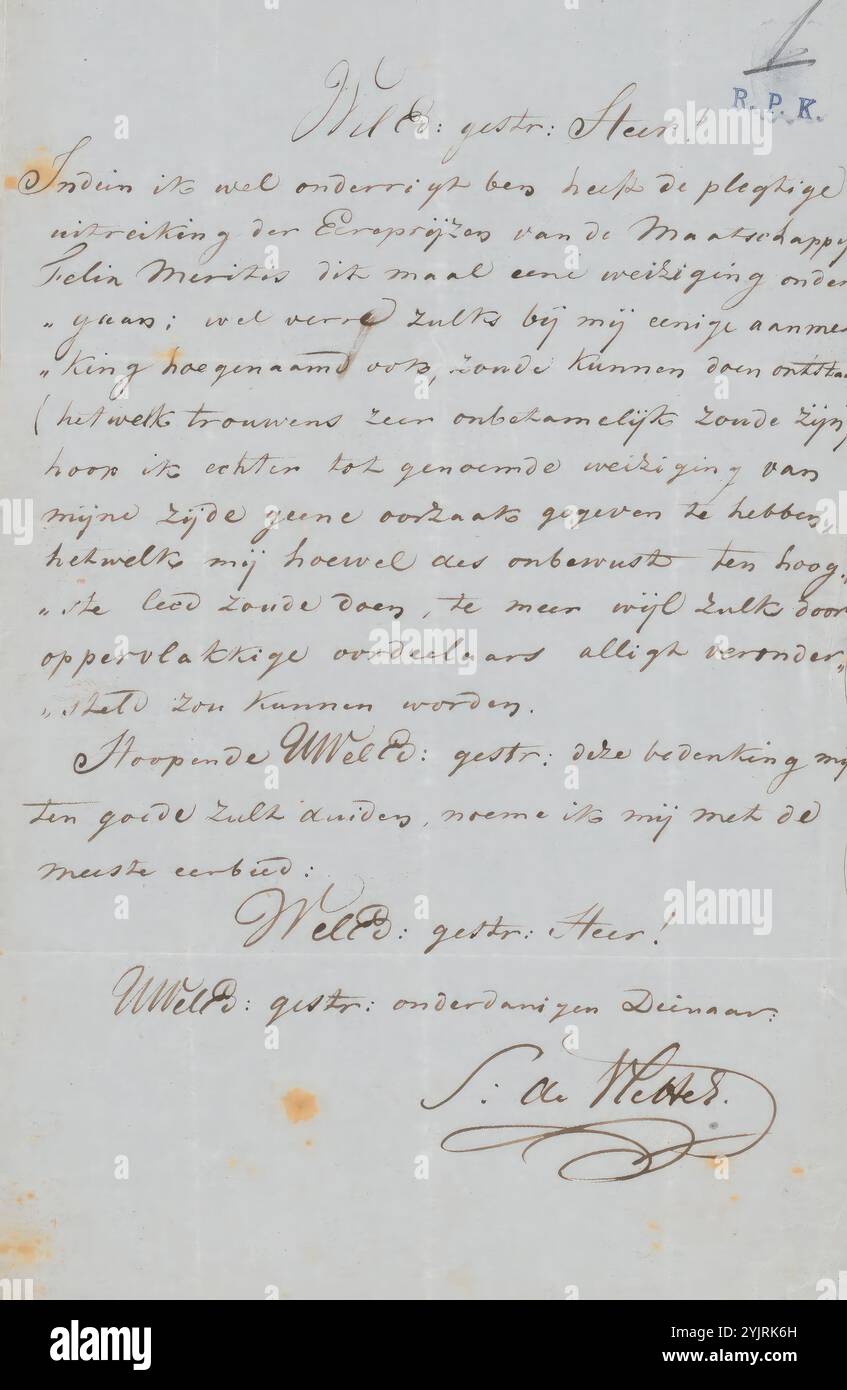 R. P. K.
WelEd: gestr: Heer!
Indien ik wel onderrigt ben heeft de plegtige
uitreiking der Eereprijzen van de Maatschappy
Felix Meritis dit maal eene weiziging onder
„gaan; wel verre zulks bij mij eenige aanmer
„king hoegenaamd ook, zoude kunnen doen ontstaa
(hetwelk trouwens zeer onbetamelijk zoude zijn)
hoop ik echter tot genoemde weiziging van
mijne zijde geene oorzaak gegeven te hebben,
hetwelk mij hoewel des onbewust ten hoog„
„ste leed zoude doen, te meer wijl zulk door
oppervlakkige oordeelaars alligt veronder„
„steld zou kunnen worden.
Hoopende UWelEd: gestr: deze bedenking my
ten goede zult duiden, noeme ik mij met de
meeste eerbied:
WelEd: gestr: Heer!
UWelEd: gestr: onderdanigen Deinaar:
S: de
alamy
Image ID: 2YJRK6H
www.alamy.com